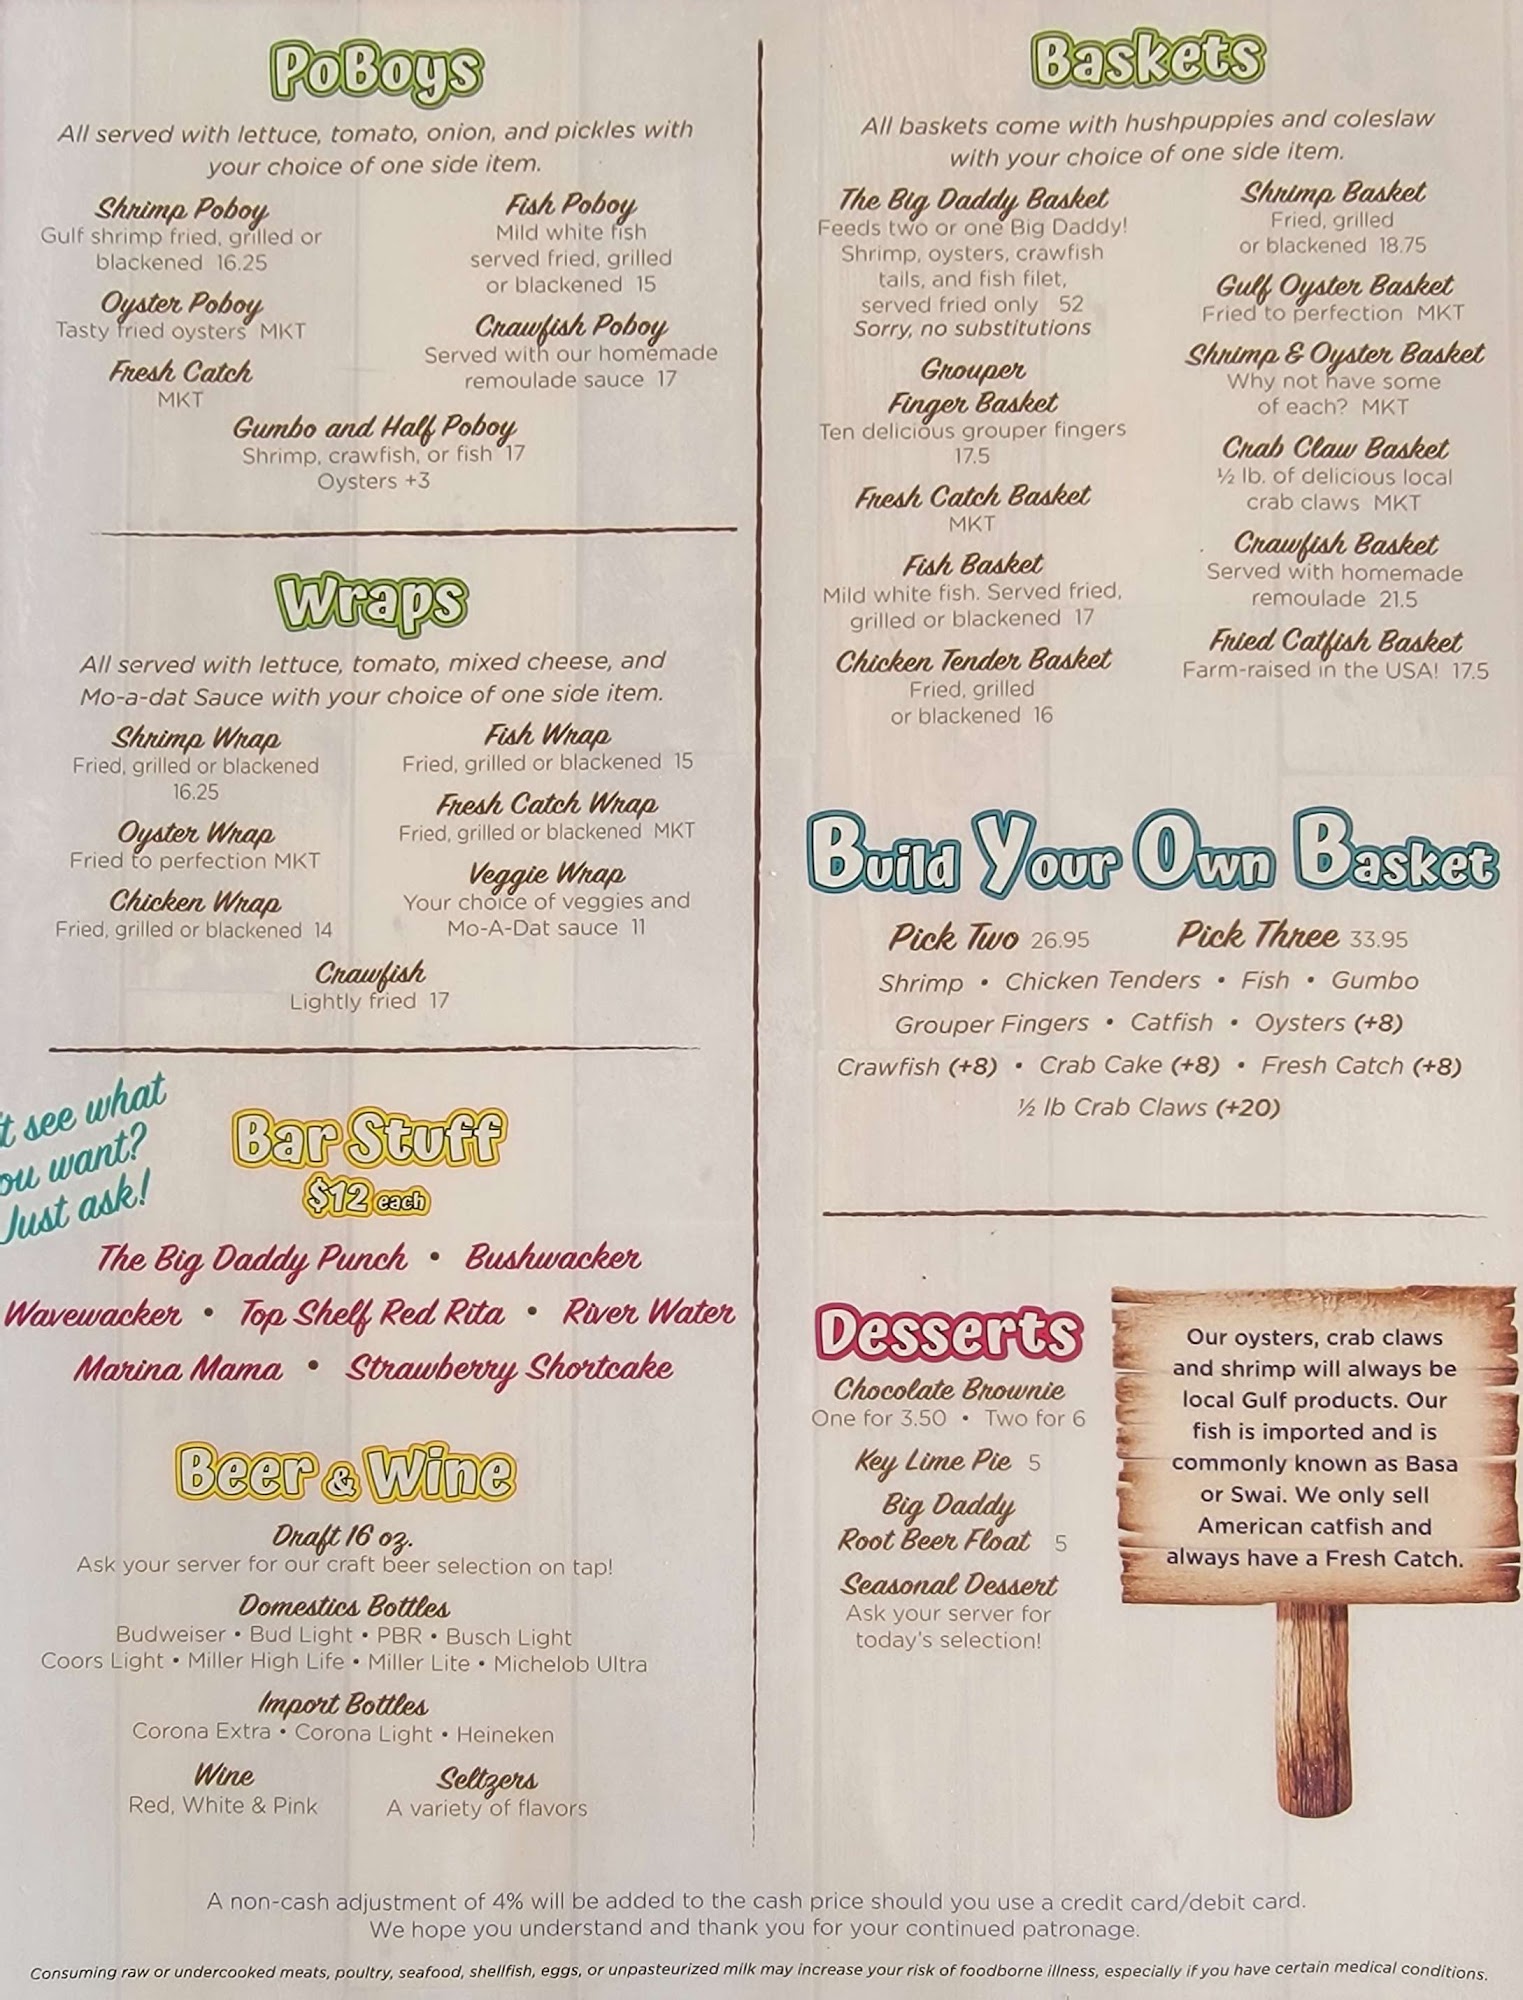 PoBoys
All served with lettuce, tomato, onion, and pickles with
your choice of one side item.
Shrimp Poboy
Gulf shrimp fried, grilled or
blackened 16.25
Oyster Poboy
Tasty fried oysters MKT
Fresh Catch
MKT
Fish Poboy
Mild white fish
served fried, grilled
or blackened 15
Crawfish Poboy
Served with our homemade
remoulade sauce 17
Gumbo and Half Poboy
Shrimp, crawfish, or fish 17
Oysters +3
Wraps
All served with lettuce, tomato, mixed cheese, and
Mo-a-dat Sauce with your choice of one side item.
Shrimp Wrap
Fried, grilled or blackened
16.25
Oyster Wrap
Fried to perfection MKT
Chicken Wrap
Fried, grilled or blackened 14
Fish Wrap
Fried, grilled or blackened 15
Fresh Catch Wrap
Fried, grilled or blackened MKT
Veggie Wrap
Your choice of veggies and
Mo-A-Dat sauce 11
Crawfish
Lightly fried 17
see what
want?
Just ask!
Bar Stuff
$12 each
The Big Daddy Punch • Bushwacker
Wavewacker • Top Shelf Red Rita • River Water
Marina Mama • Strawberry Shortcake
Beer & Wine
Draft 16 oz.
Ask your server for our craft beer selection on tap!
Domestics Bottles
Budweiser • Bud Light • PBR • Busch Light
Coors Light • Miller High Life • Miller Lite • Michelob Ultra
Import Bottles
Corona Extra • Corona Light • Heineken
Wine
Red, White & Pink
Seltzers
A variety of flavors
Baskets
All baskets come with hushpuppies and coleslaw
with your choice of one side item.
The Big Daddy Basket
Feeds two or one Big Daddy!
Shrimp, oysters, crawfish
tails, and fish filet,
served fried only 52
Sorry, no substitutions
Grouper
Finger Basket
Ten delicious grouper fingers
17.5
Fresh Catch Basket
MKT
Fish Basket
Mild white fish. Served fried,
grilled or blackened 17
Chicken Tender Basket
Fried, grilled
or blackened 16
Shrimp Basket
Fried, grilled
or blackened 18.75
Gulf Oyster Basket
Fried to perfection MKT
Shrimp & Oyster Basket
Why not have some
of each? MKT
Crab Claw Basket
½ lb. of delicious local
crab claws MKT
Crawfish Basket
Served with homemade
remoulade 21.5
Fried Catfish Basket
Farm-raised in the USA! 17.5
Build Your Own Basket
Pick Two 26.95 Pick Three 33.95
Shrimp • Chicken Tenders • Fish • Gumbo
Grouper Fingers • Catfish • Oysters (+8)
Crawfish (+8) • Crab Cake (+8) • Fresh Catch (+8)
½ lb Crab Claws (+20)
Desserts
Chocolate Brownie
One for 3.50 • Two for 6
Key Lime Pie 5
Big Daddy
Root Beer Float 5
Seasonal Dessert
Ask your server for
today's selection!
Our oysters, crab claws
and shrimp will always be
local Gulf products. Our
fish is imported and is
commonly known as Basa
or Swai. We only sell
American catfish and
always have a Fresh Catch.
A non-cash adjustment of 4% will be added to the cash price should you use a credit card/debit card.
We hope you understand and thank you for your continued patronage.
Consuming raw or undercooked meats, poultry, seafood, shellfish, eggs, or unpasteurized milk may increase your risk of foodborne illness, especially if you have certain medical conditions.